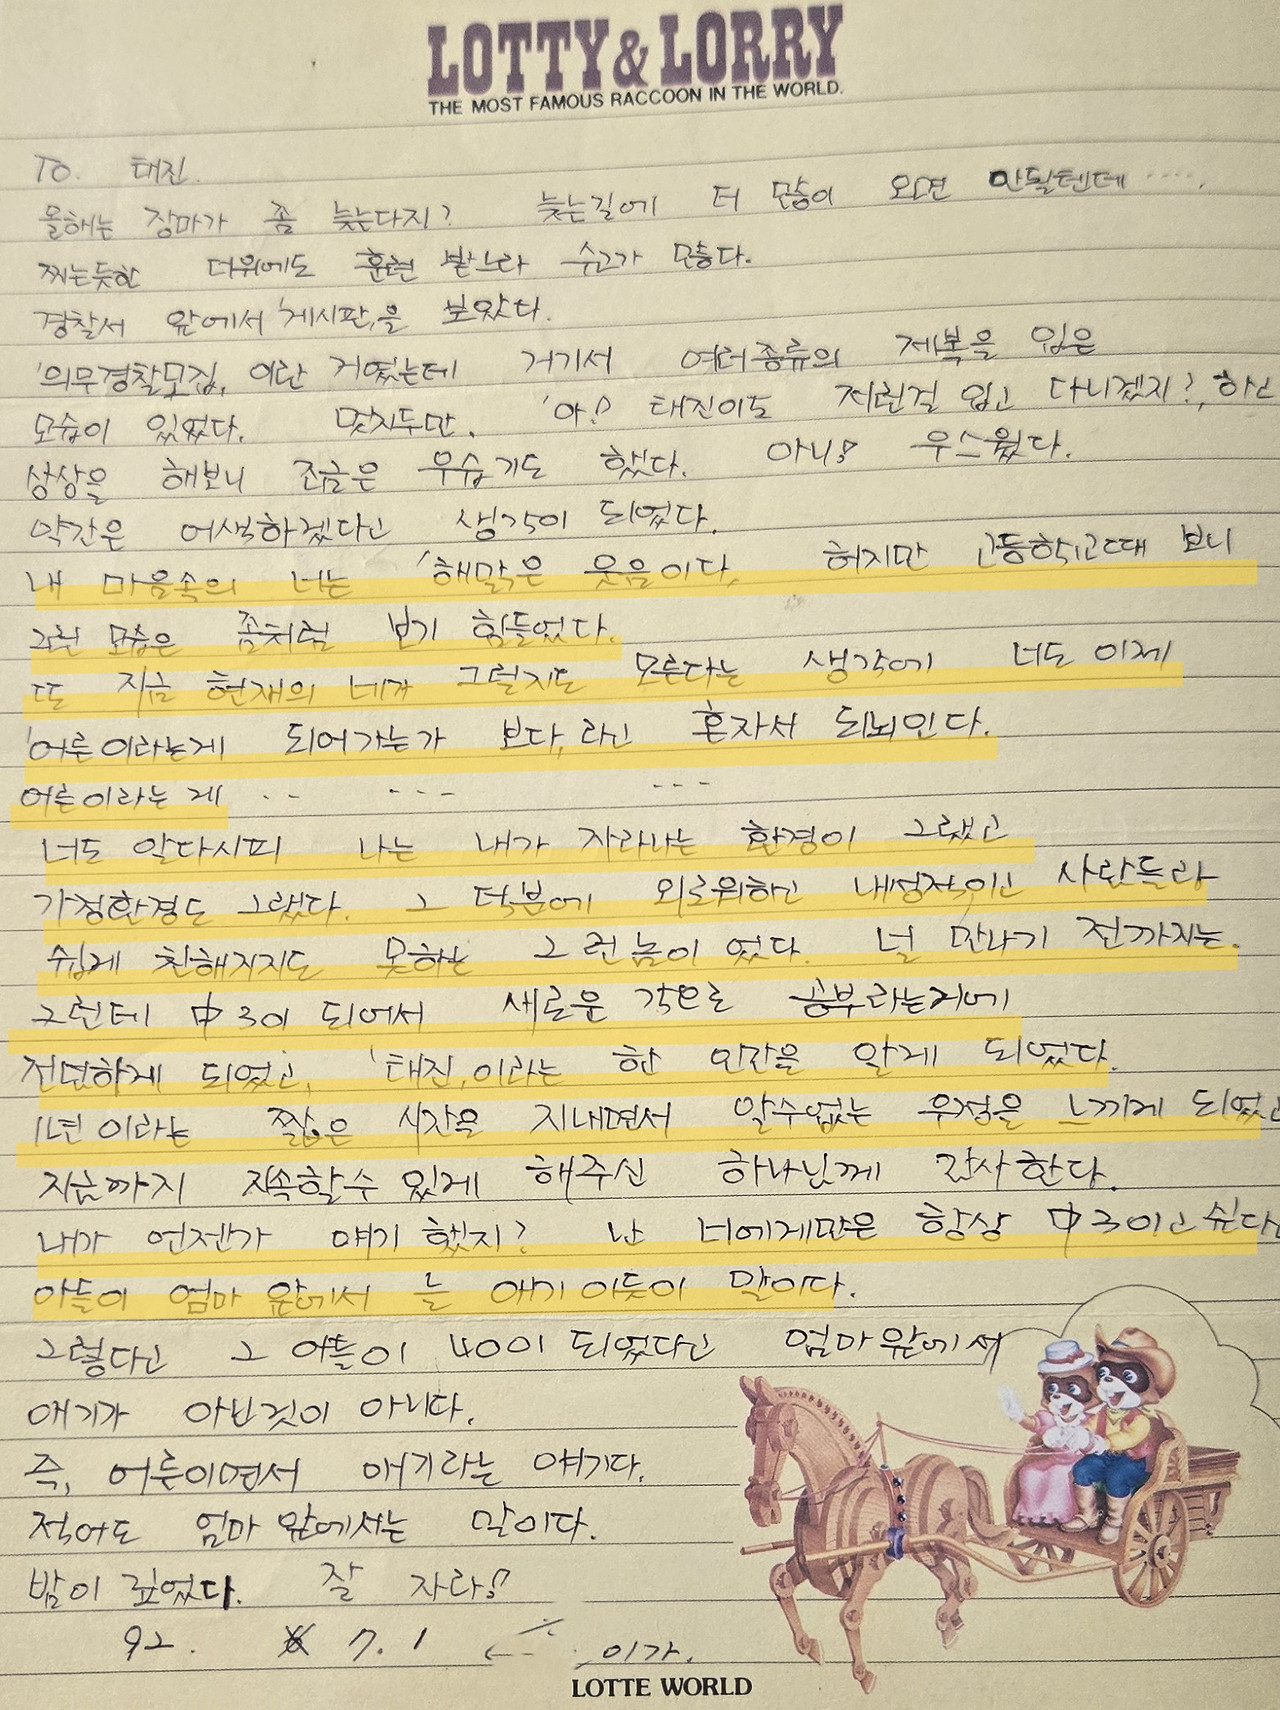 LOTTY & LORRY
THE MOST FAMOUS RACCOON IN THE WORLD.
TO. 태진.
올해는 장마가 좀 늦는다지? 늦는길에 더 많이 오면 안될텐데 ·····.
찌는듯한 더위에도 훈련 받느라 수고가 많다.
경찰서 앞에서 '게시판,을 보았다.
'의무경찰모집, 이란 거였는데 거기서 여러종류의 제복을 입은
모습이 있었다. 멋지두만. '아! 태진이도 저런걸 입고 다니겠지?, 하고
상상을 해보니 조금은 우습기도 했다. 아니! 우스웠다.
약간은 어색하겠다고 생각이 되었다.
내 마음속의 너는 '해맑은 웃음이다, 허지만 고등학교때 보니
그런 모습은 좀처럼 보기 힘들었다.
또 지금 현재의 네가 그럴지도 모른다는 생각에 너도 이제
'어른이라는게 되어가는가 보다,라고 혼자서 되뇌인다.
어른이라는 게 ·· --- ---
너도 알다시피 나는 내가 자라나는 환경이 그랬고
가정환경도 그랬다. 그 덕분에 외로워하고 내성적이고 사람들과
쉽게 친해지지도 못하는 그런놈이 었다. 널 만나기 전까지는.
그런데 中3이 되어서 새로운 각오로 공부라는거에
전념하게 되었고, '태진,이라는 한 인간을 알게 되었다.
1년이라는 짧은 시간을 지내면서 알수없는 우정을 느끼게 되었고
지금까지 지속할수 있게 해주신 하나님께 감사한다.
내가 언젠가 얘기 했지? 난 너에게만은 항상 中3이고 싶다고
아들이 엄마 앞에서 늘 애기 이듯이 말이다.
그렇다고 그 아들이 40이 되었다고 엄마앞에서
애기가 아닌것이 아니다.
즉, 어른이면서 애기라는 얘기다.
적어도 엄마 앞에서는 말이다.
밤이 깊었다. 잘 자라!
92. 7. 1 이가.
LOTTE WORLD